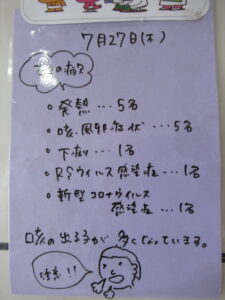 7月27日(木)
今日の病欠
・発熱…5名
・咳・風邪症状…5名
・下痢…1名
・RSウイルス感染症…1名
・新型コロナウイルス
感染症…1名
咳の出る子が多くなっています。
注意!!